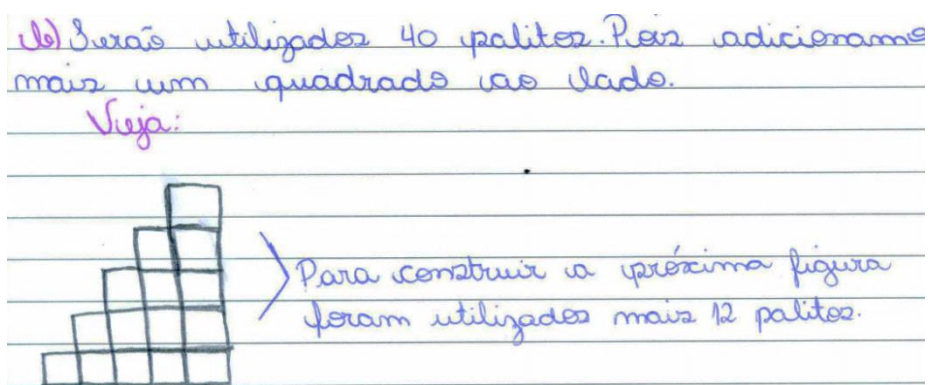 b) Serão utilizados 40 palitos. Pois adicionamo
mais um quadrado ao lado.
Veja:
Para construir a próxima figura
foram utilizados mais 12 palitos.